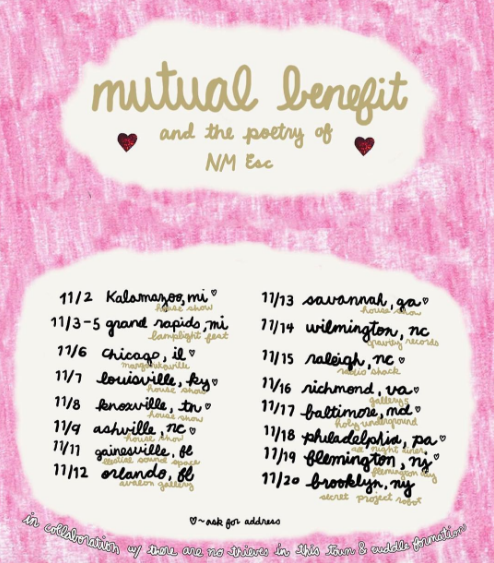 mutual benefit
and the poetry of
NM Esc
11/2 Kalamazoo, mi ♡
house show
11/3-5 grand rapids, mi
lamplight fest
11/6 chicago, il ♡
11/7 louisville, ky ♡
house show
11/8 knoxville, tn ♡
house show
11/9 ashville, nc ♡
house show
11/11 gainesville, fl
sound space
11/12 orlando, fl
avalon gallery
11/13 savannah, ga ♡
house show
11/14 wilmington, nc
gravity records
11/15 raleigh, nc ♡
shack
11/16 richmond, va ♡
gallery5
11/17 baltimore, md ♡
holy underground
11/18 philadelphia, pa ♡
all night diner
11/19 flemington, nj ♡
flemington diy
11/20 brooklyn, ny
secret project robot
♡~ask for address
in collaboration w/ there are no thieves in this town & cuddle formation